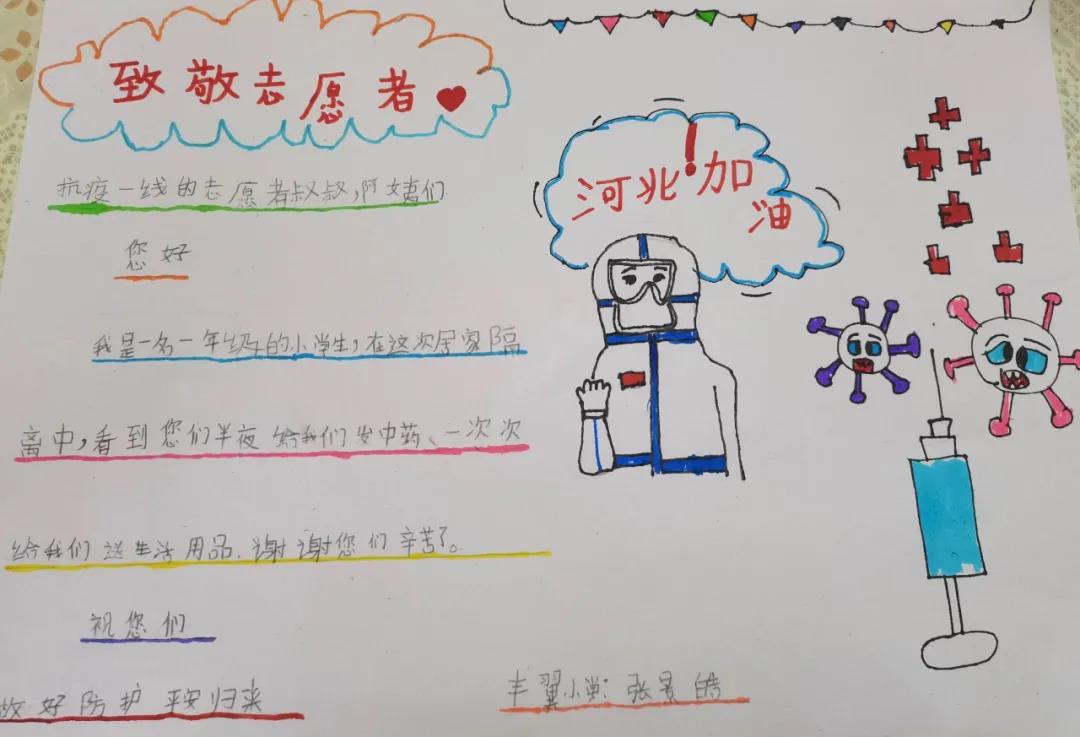 致敬志愿者
抗疫一线的志愿者叔叔,阿姨们
您好
我是一名一年级的小学生,在这次居家隔
离中,看到您们半夜给我们发中药、一次次
给我们送生活用品.谢谢您们辛苦了。
祝您们
做好防护 平安归来
丰翼小学:张景皓
河北!加
油